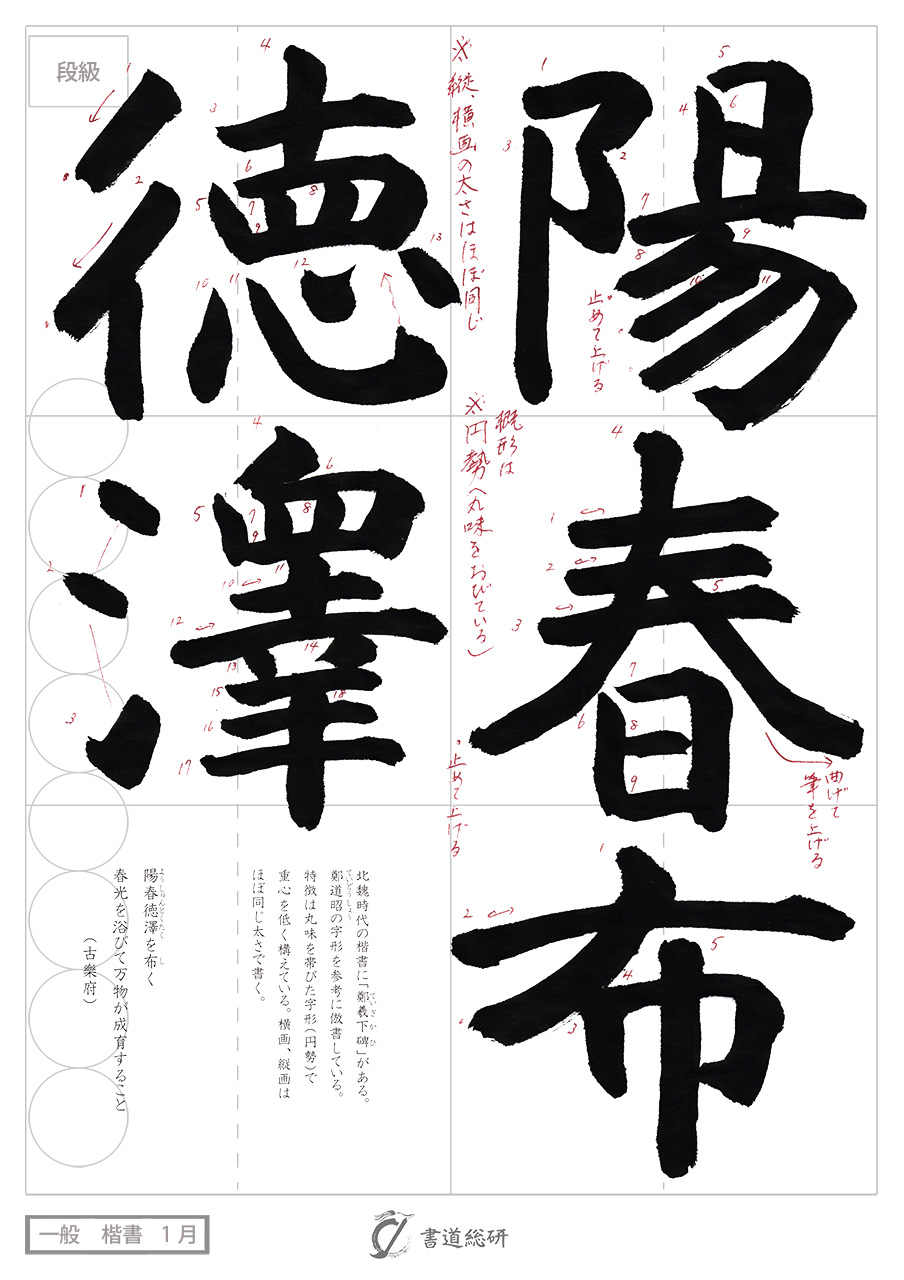 陽春布
徳澤
段級
※縦、横画の太さはほぼ同じ
止めて上げる
概形は
※円勢(丸味をおびている)
曲げて
筆を上げる
止めて上げる
北魏時代の楷書に「鄭羲下碑」がある。
ていぎかひ
鄭道昭の字形を参考に倣書している。
ていどうしょう
特徴は丸味を帯びた字形(円勢)で
重心を低く構えている。横画、縦画は
ほぼ同じ太さで書く。
陽春徳澤を布く
ようしゅんとくたく し
春光を浴びて万物が成育すること
(古樂府)
一般 楷書 1月
書道総研